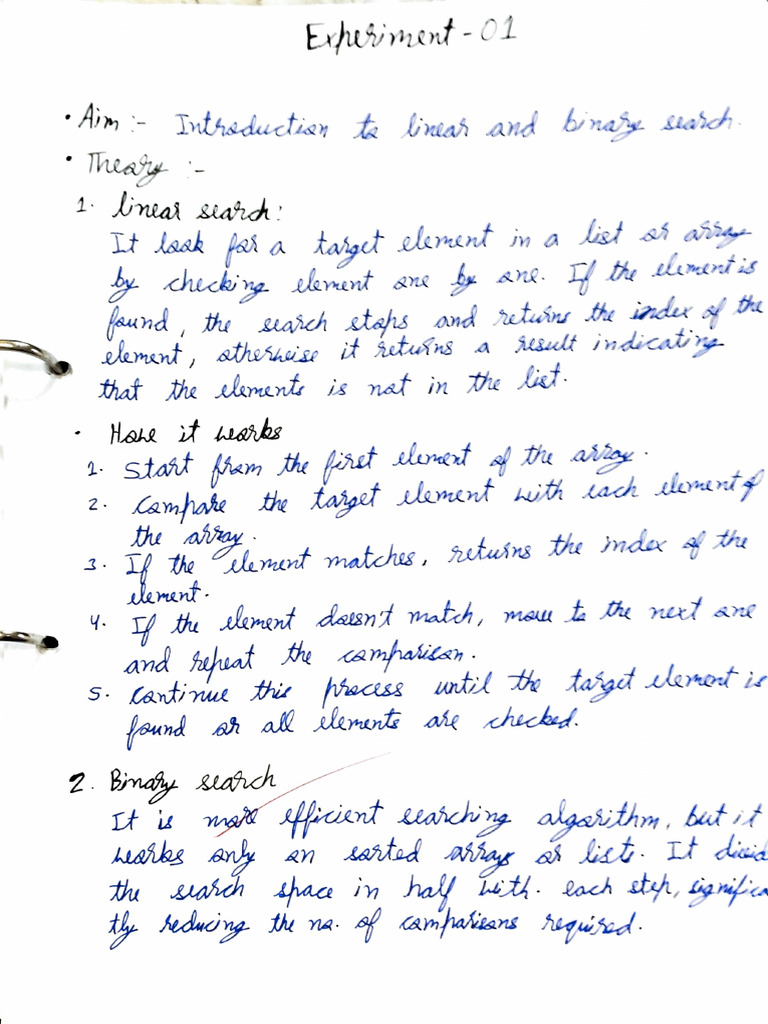 Experiment - 01
• Aim :- Introduction to linear and binary search.
• Theory :-
1. linear search:
It look for a target element in a list or array
by checking element one by one. If the element is
found, the search stops and returns the index of the
element, otherwise it returns a result indicating
that the elements is not in the list.
• How it works
1. Start from the first element of the array.
2. Compare the target element with each element of
the array.
3. If the element matches, returns the index of the
element.
4. If the element doesn't match, move to the next one
and repeat the comparison.
5. Continue this process until the target element is
found or all elements are checked.
2. Binary search
It is more efficient searching algorithm, but it
works only on sorted arrays or lists. It divid
the search space in half with. each step, significa
tly reducing the no. of comparisons required.